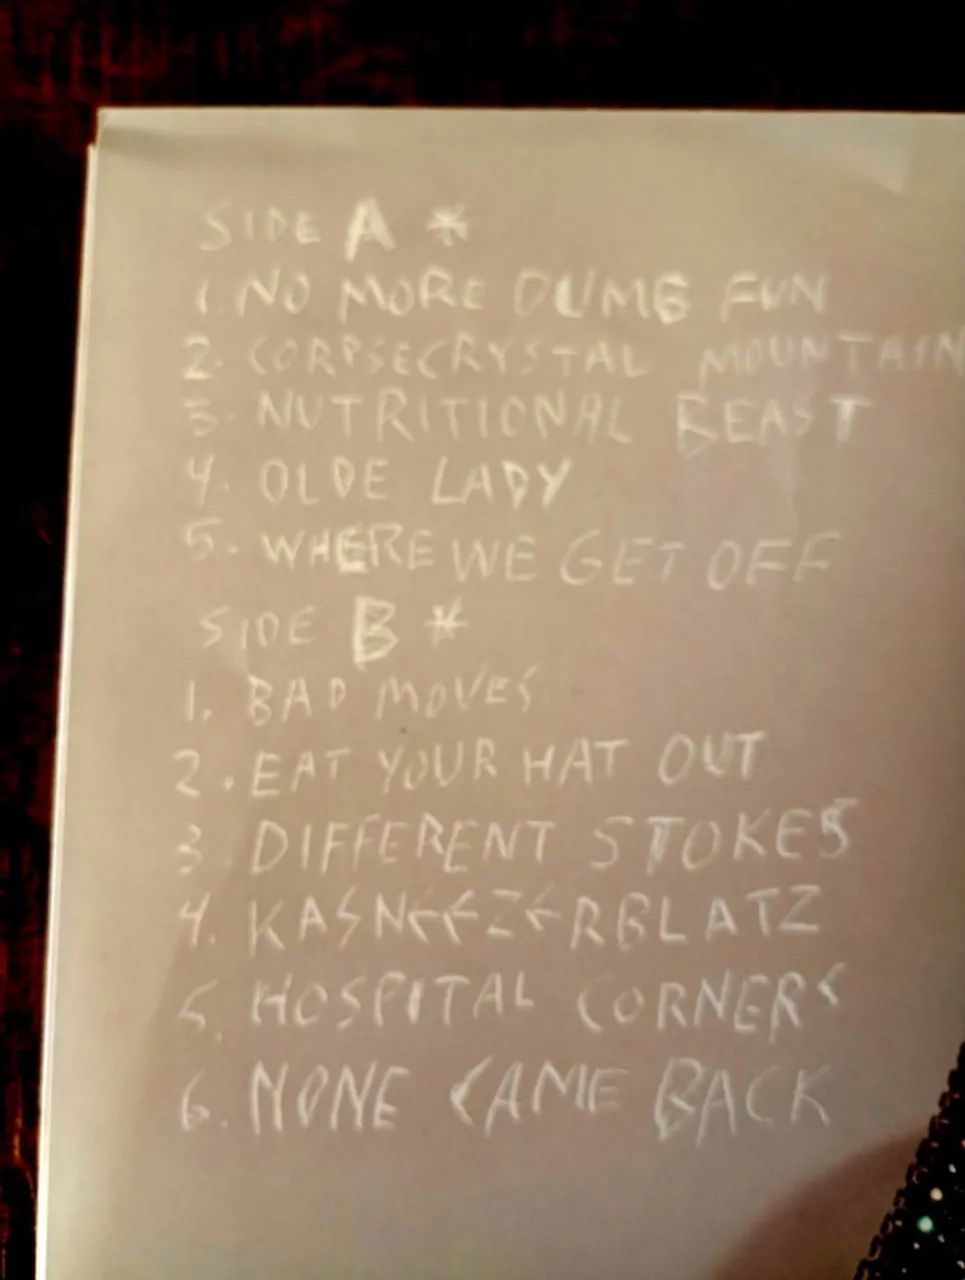 SIDE A *
1. NO MORE DUMB FUN
2. CORPSECRYSTAL MOUNTAIN
3. NUTRITIONAL BEAST
4. OLDE LADY
5. WHERE WE GET OFF
SIDE B *
1. BAD MOVES
2. EAT YOUR HAT OUT
3. DIFFERENT STOKES
4. KASNEEZERBLATZ
5. HOSPITAL CORNERS
6. NONE CAME BACK